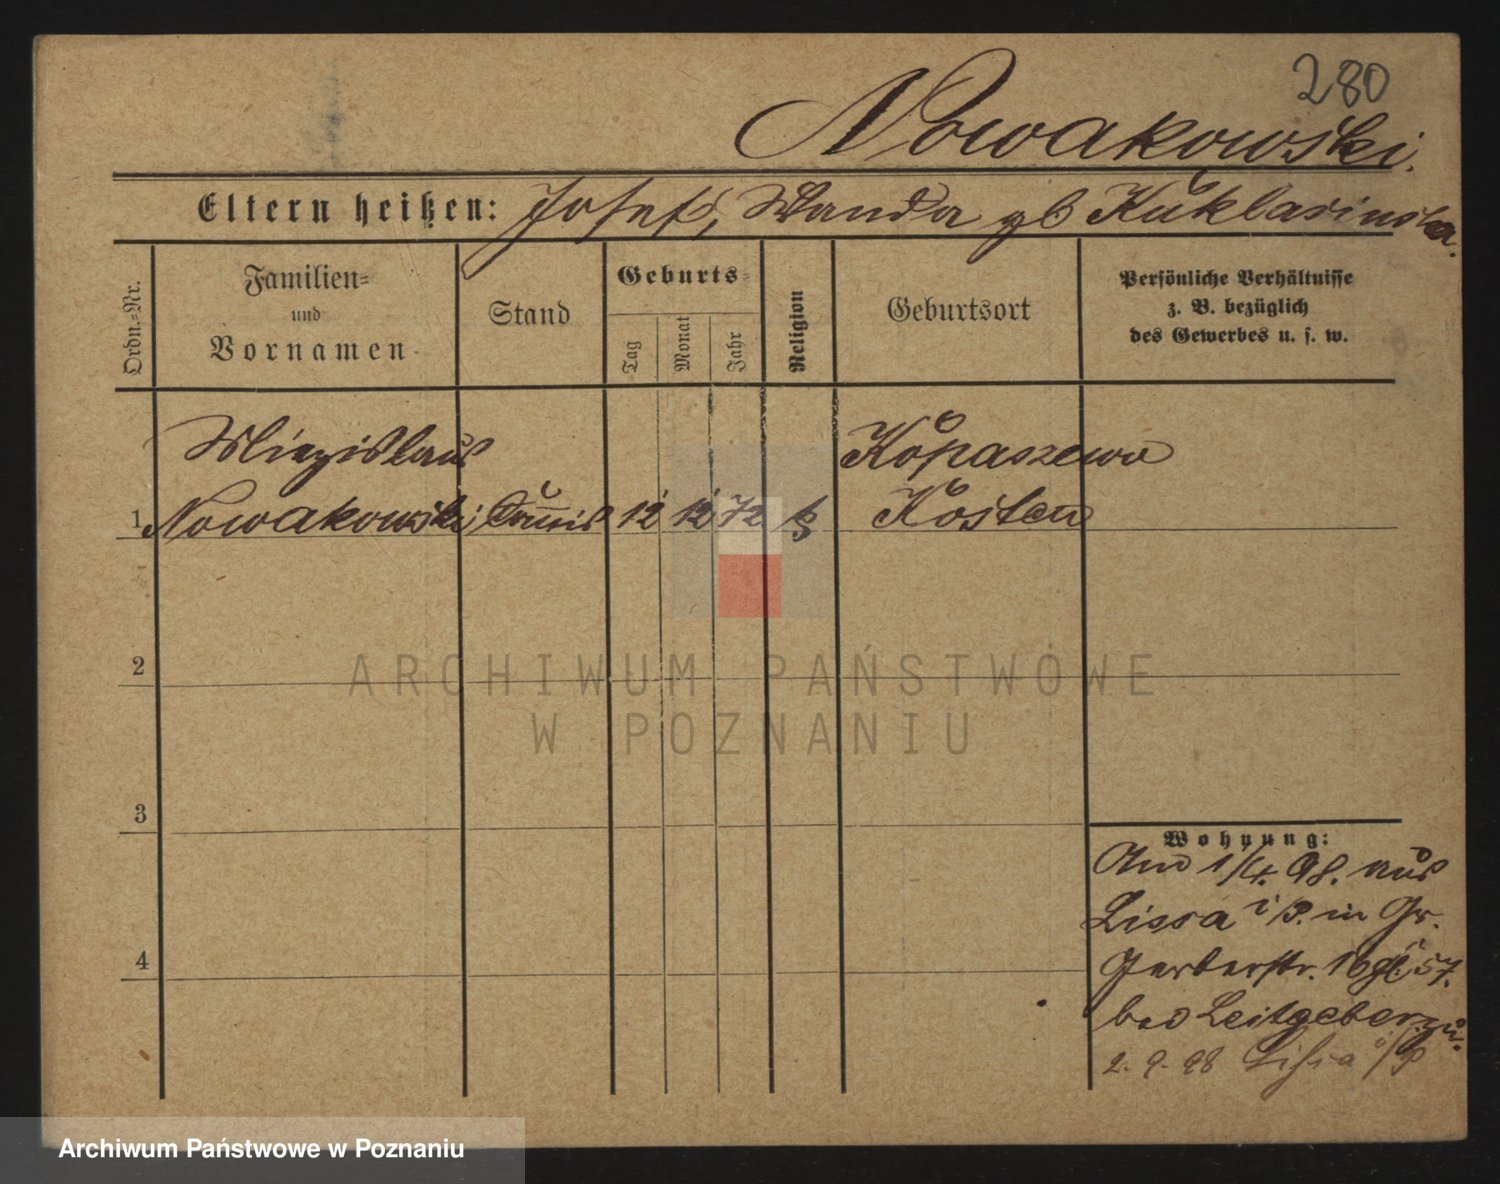 280
Nowakowski.
Eltern heißen: Josef, Wanda gb Kuklasinska.
Ordn.-Nr.
Familien-
und
Vornamen
Stand
Geburts-
Tag
Monat
Jahr
Religion
Geburtsort
Persönliche Verhältnisse
z. B. bezüglich
des Gewerbes u. s. w.
Miezislaus
Kopaszewo
1 Nowakowski, 12 12 72 k Kosten
2
3
4
Wohnung:
Am 1/4. 98. aus
Lissa i/P. in Gr.
Gerberstr. 57.
bei Leitgeber zu.
2. 9. 98 Lissa i/P
ARCHIWUM PAŃSTWOWE
W POZNANIU
Archiwum Państwowe w Poznaniu